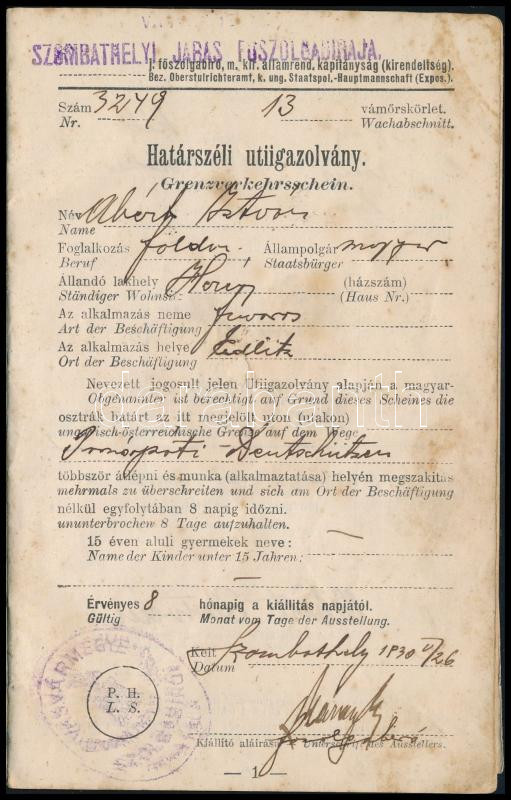 SZOMBATHELYI JÁRÁS FŐSZOLGABIRÁJA.
j. főszolgabiró, m. kir. államrend. kapitányság (kirendeltség).
Bez. Oberstulrichteramt, k. ung. Staatspol.-Hauptmannschaft (Expos.).
Szám 3249 13 vámőrskörlet.
Nr. Wachabschnitt.
Határszéli utiigazolvány.
Grenzverkehrsschein.
Név István
Name
Foglalkozás földm. Állampolgár magyar
Beruf Staatsbürger
Állandó lakhely (házszám)
Ständiger Wohnsitz (Haus Nr.)
Az alkalmazás neme fuvaros
Art der Beschäftigung
Az alkalmazás helye Edlitz
Ort der Beschäftigung
Nevezett jogosult jelen Utiigazolvány alapján a magyar-
Obgenannter ist berechtigt auf Grund dieses Scheines die
osztrák határt az itt megjelölt uton (utakon)
ungarisch-österreichische Grenze auf dem Wege
Pornóapáti - Deutschützen
többször átlépni és munka (alkalmaztatása) helyén megszakitás
mehrmals zu überschreiten und sich am Ort der Beschäftigung
nélkül egyfolytában 8 napig időzni.
ununterbrochen 8 Tage aufzuhalten.
15 éven aluli gyermekek neve: —
Name der Kinder unter 15 Jahren:
—
Érvényes 8 hónapig a kiállitás napjától.
Gültig Monat vom Tage der Ausstellung.
Kelt Szombathely 1930 V/26
Datum
P. H.
L. S.
VASVÁRMEGYE
főszolgabiró
Kiállitó aláirása Unterschrift des Ausstellers.
— 1 —